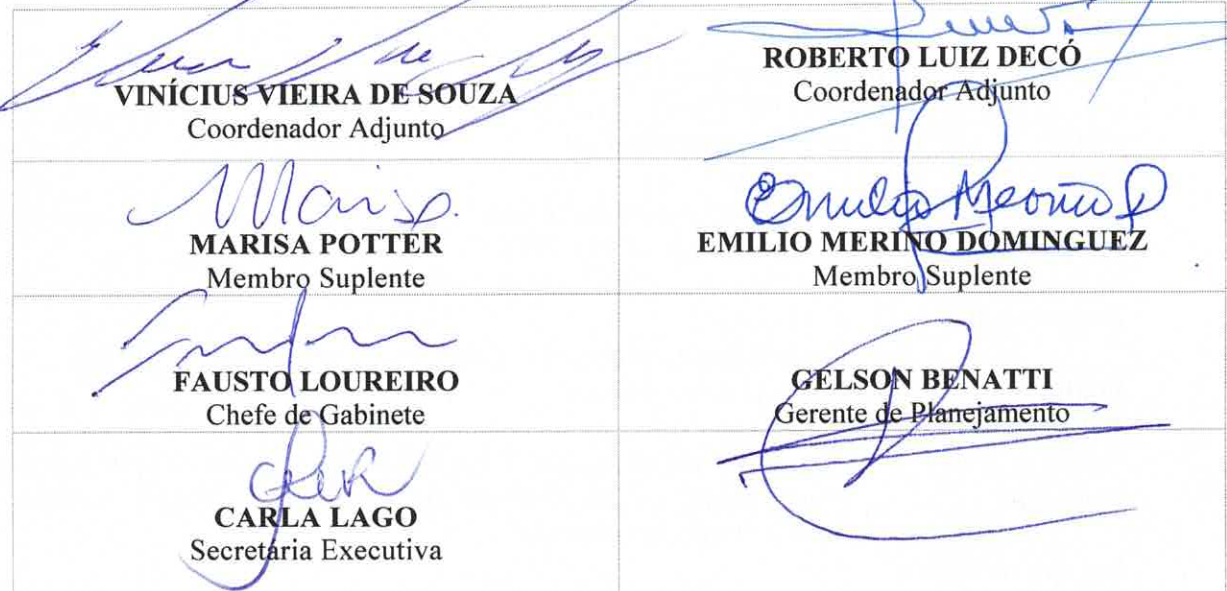 VINÍCIUS VIEIRA DE SOUZA
Coordenador Adjunto
ROBERTO LUIZ DECÓ
Coordenador Adjunto
Marisa
MARISA POTTER
Membro Suplente
Emilio Merino D
EMILIO MERINO DOMINGUEZ
Membro Suplente
FAUSTO LOUREIRO
Chefe de Gabinete
GELSON BENATTI
Gerente de Planejamento
CARLA LAGO
Secretária Executiva